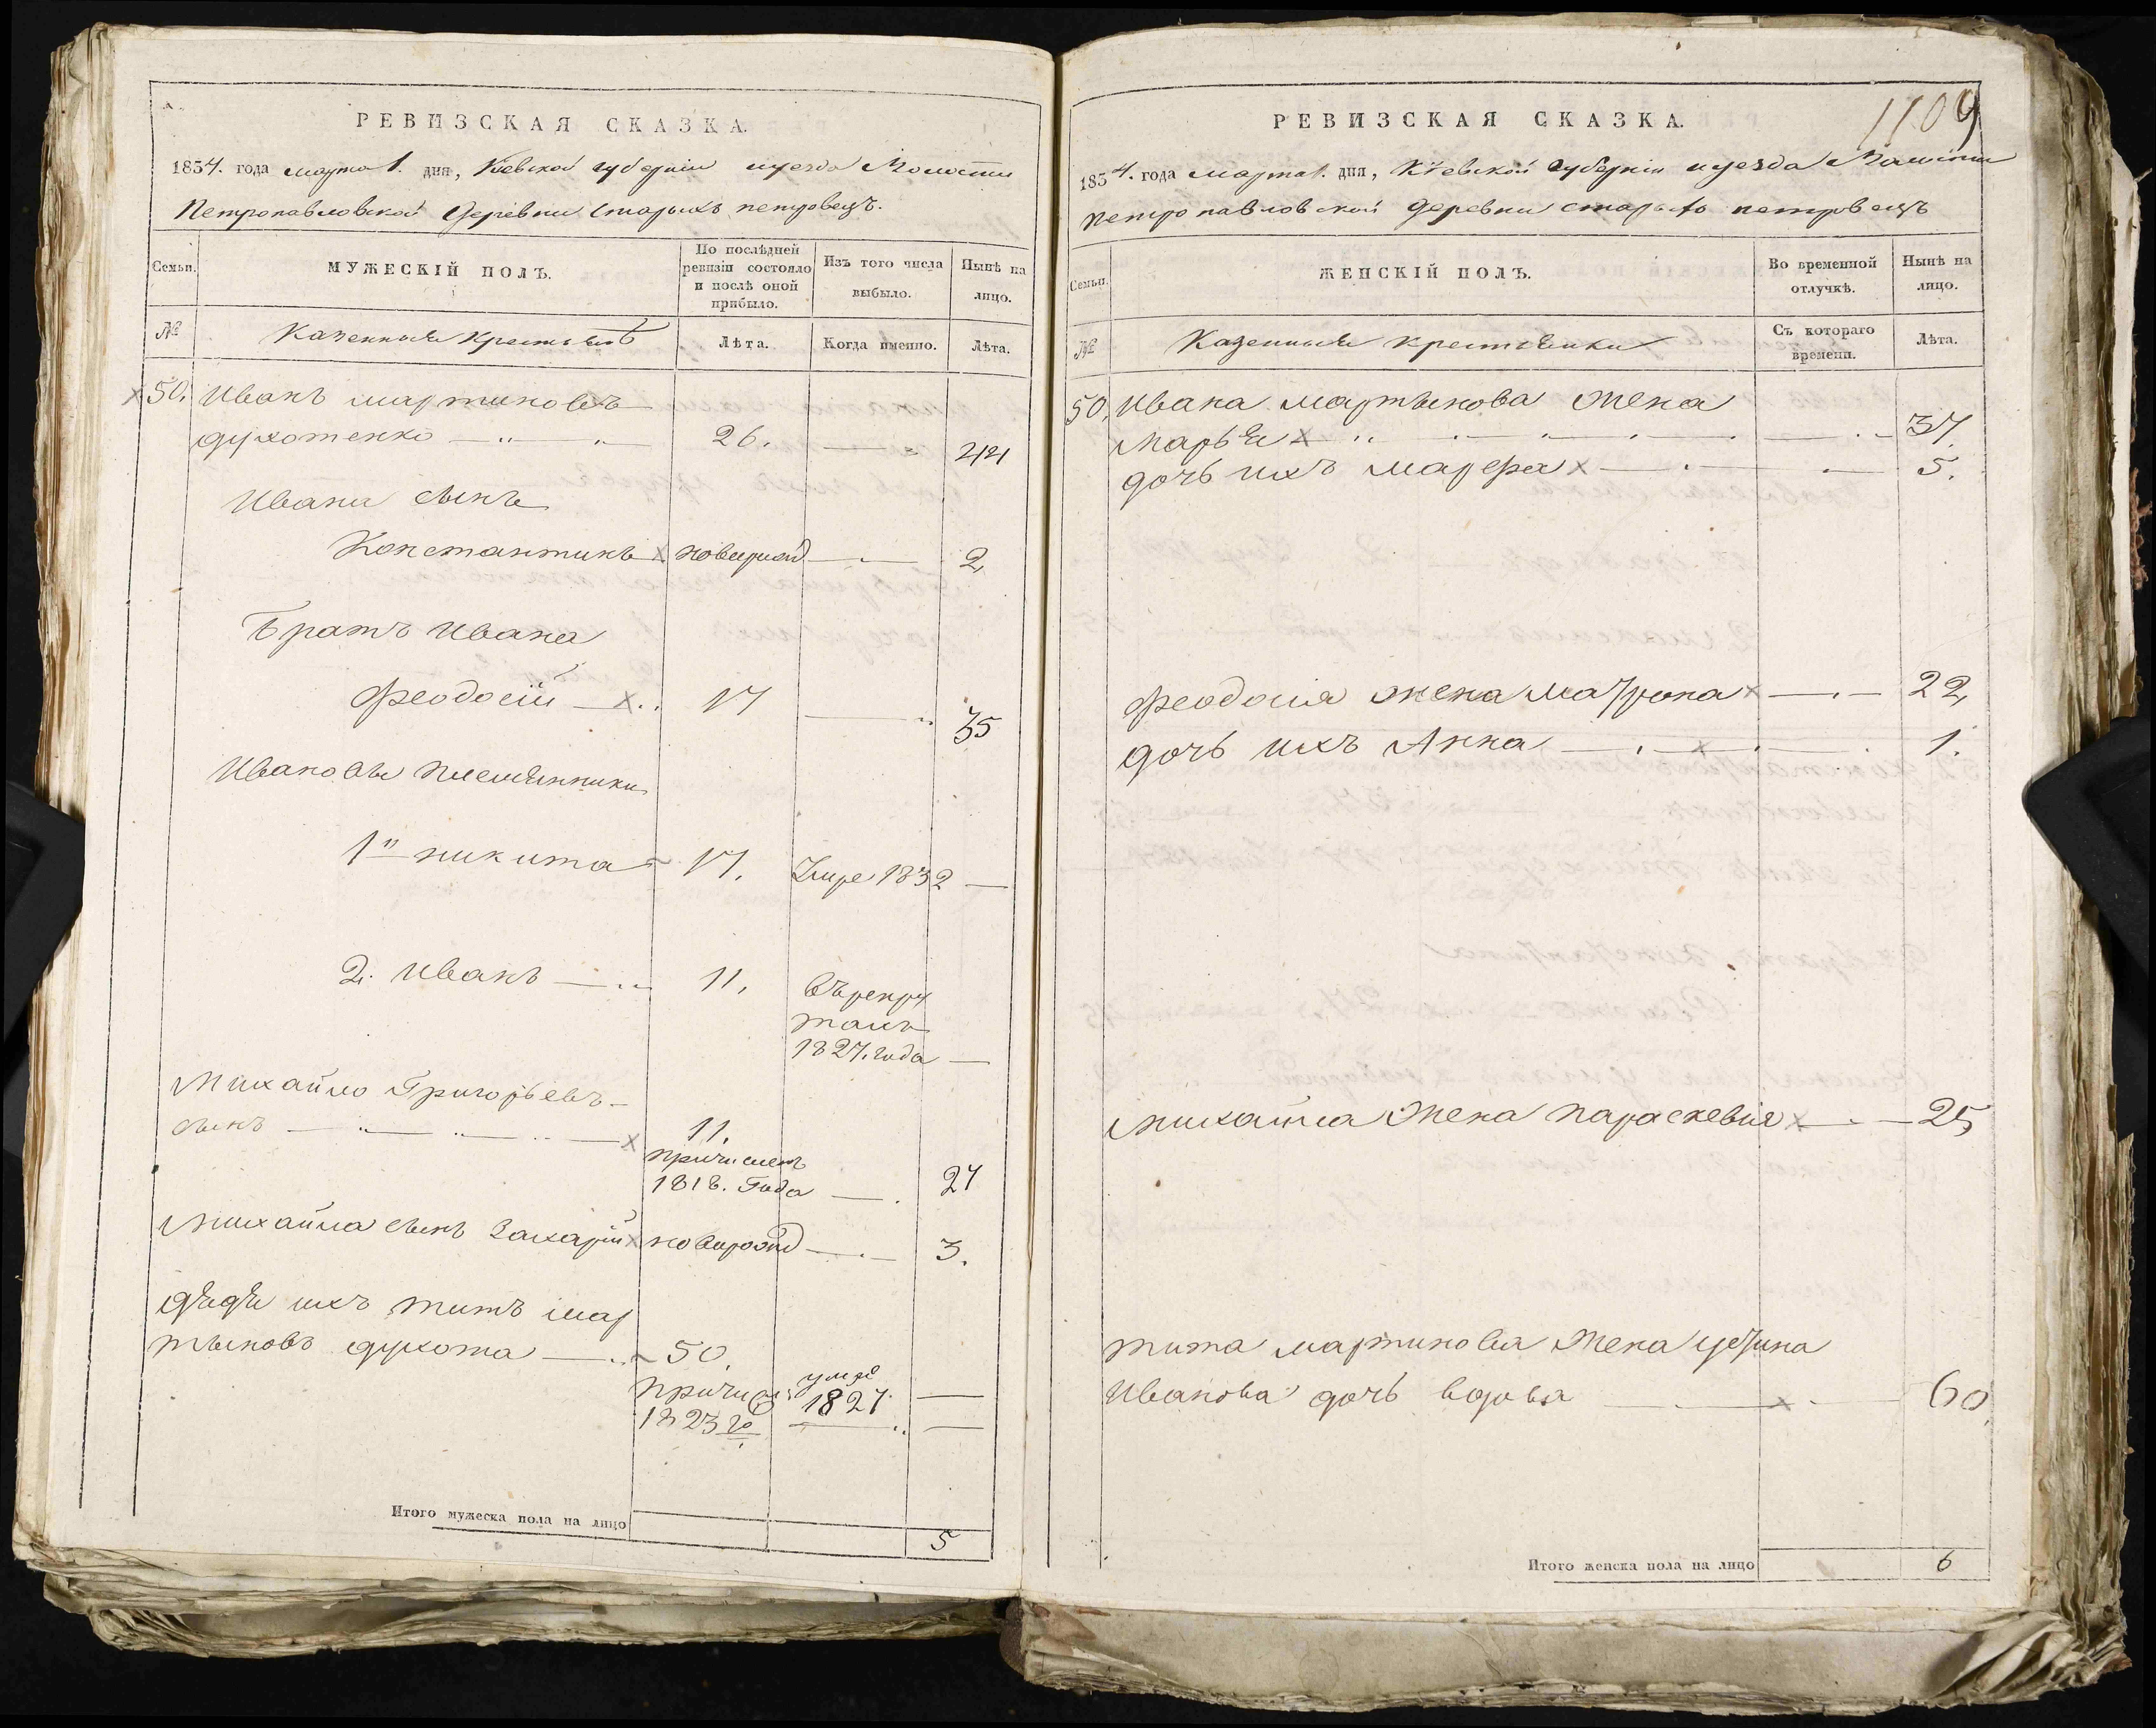 РЕВИЗСКАЯ СКАЗКА.
1834. года марта 1. дня, Киевской губернии уезда Волости
Петропавловской деревни Старыхъ петровецъ.
Семьи.
МУЖЕСКІЙ ПОЛЪ.
По послѣдней
ревизіи состояло
и послѣ оной
прибыло.
Изъ того числа
выбыло.
Нынѣ на
лицо.
№
Казенныя крестьянъ
Лѣта.
Когда именно.
Лѣта.
50. Иванъ мартиновъ
духотенко 26. 44
Ивана сынъ
Константинъ новорожд 2
Братъ Ивана
Феодосій 17 35
Ивановы племянники
1й никита 17. Умре 1832
2. Иванъ 11. въ рекру
тахъ
1827. года
Михайло Григорьевъ
сынъ 11.
причисленъ
1818. Года 27
Михайла сынъ Захарій новорожд 3.
дядя ихъ титъ мар
тыновъ духота 50.
причис умре
1823 го 1827
Итого мужеска пола на лицо 5
1109
РЕВИЗСКАЯ СКАЗКА.
1834. года марта 1. дня, Кіевской губерніи уезда Волости
петропавловской деревни старыхъ петровецъ
Семьи.
ЖЕНСКІЙ ПОЛЪ.
Во временной
отлучкѣ.
Нынѣ на
лицо.
№
Казенныя крестьянки
Съ котораго
времени.
Лѣта.
50. Ивана мартынова жена
Марья 37.
дочь ихъ марфа 5.
Феодосія жена матрона 22
дочь ихъ Анна 1.
михайла жена параскевія 25
тита мартинова жена
Иванова дочь вдова 60
Итого женска пола на лицо 6